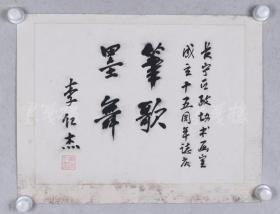 长宁区政协书画室
成立十五周年志庆
筆歌
墨舞
李仁杰